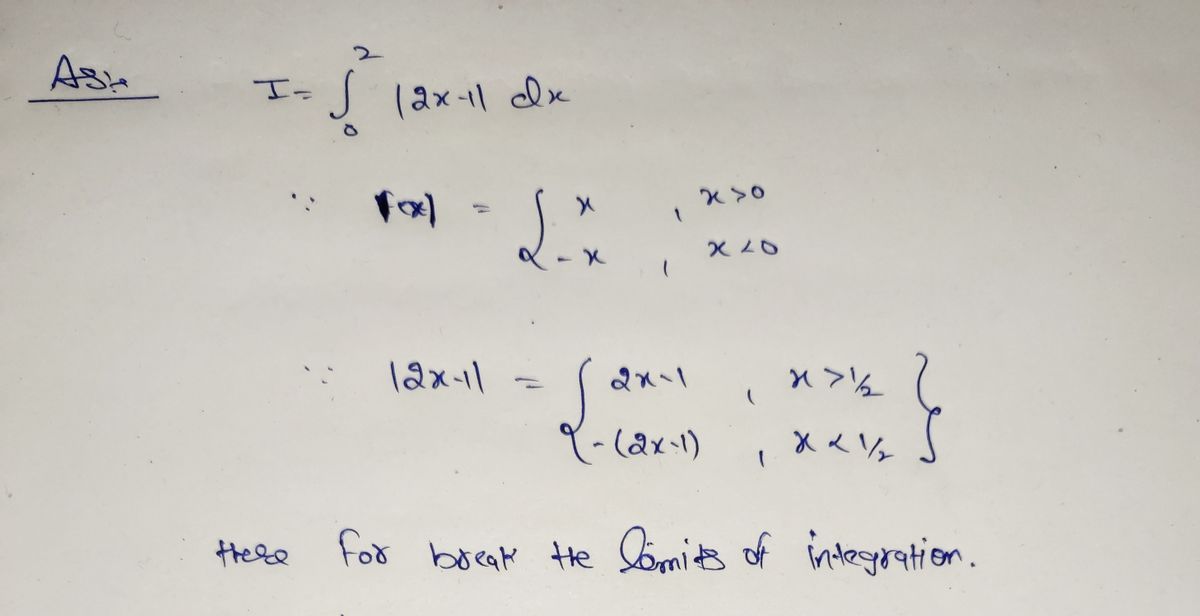 Ans:-
I = ∫₀² |2x-1| dx
∵ |x| = { x , x>0
-x , x<0
∵ |2x-1| = { 2x-1 , x>1/2 }
-(2x-1) , x<1/2
there for break the limits of integration.